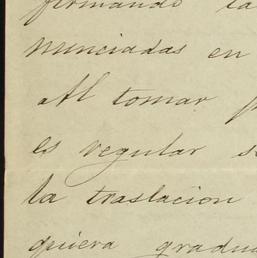 firmando la
nunciadas en
Al tomar
es regular
la traslacion
quiera